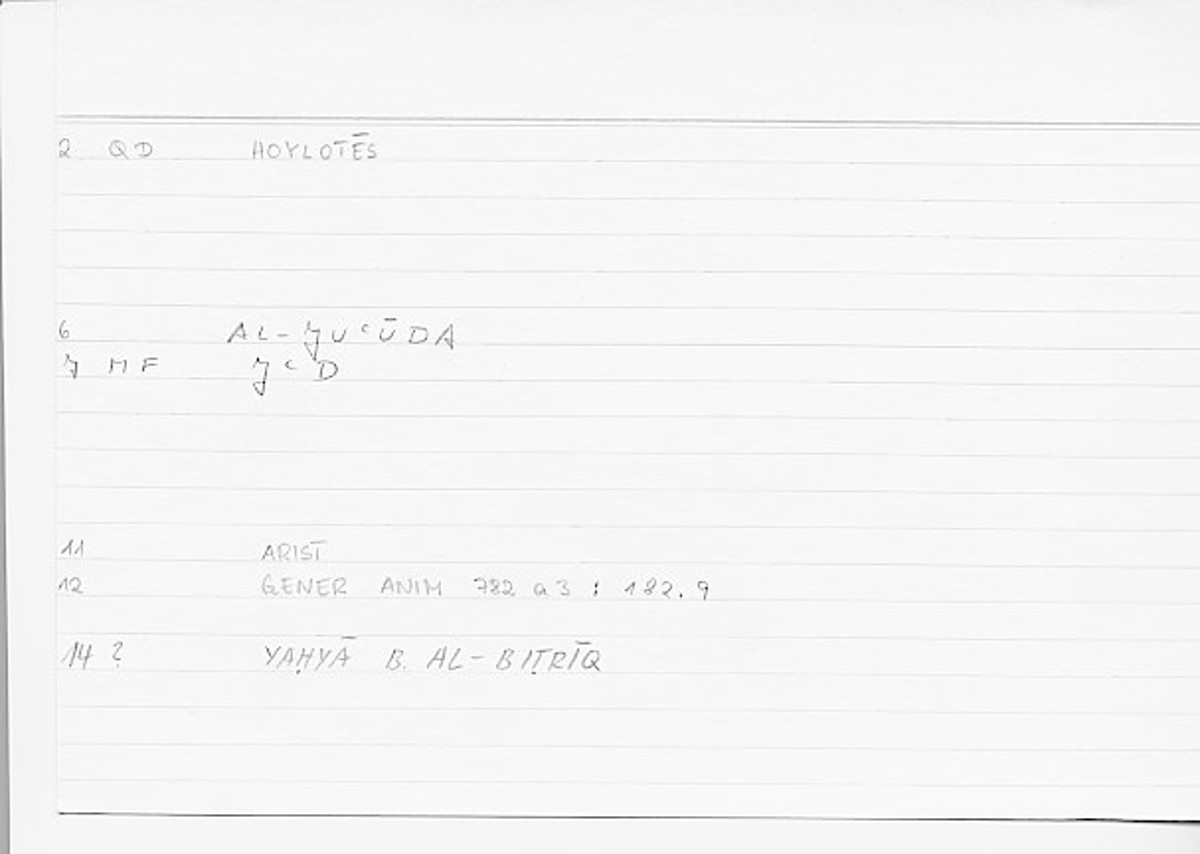 2 QD HOYLOTĒS
6 AL-JUʿŪDA
7 MF JʿD
11 ARIST
12 GENER ANIM 782 a 3 : 182.9
14 ? YAḤYĀ B. AL-BIṬRĪQ